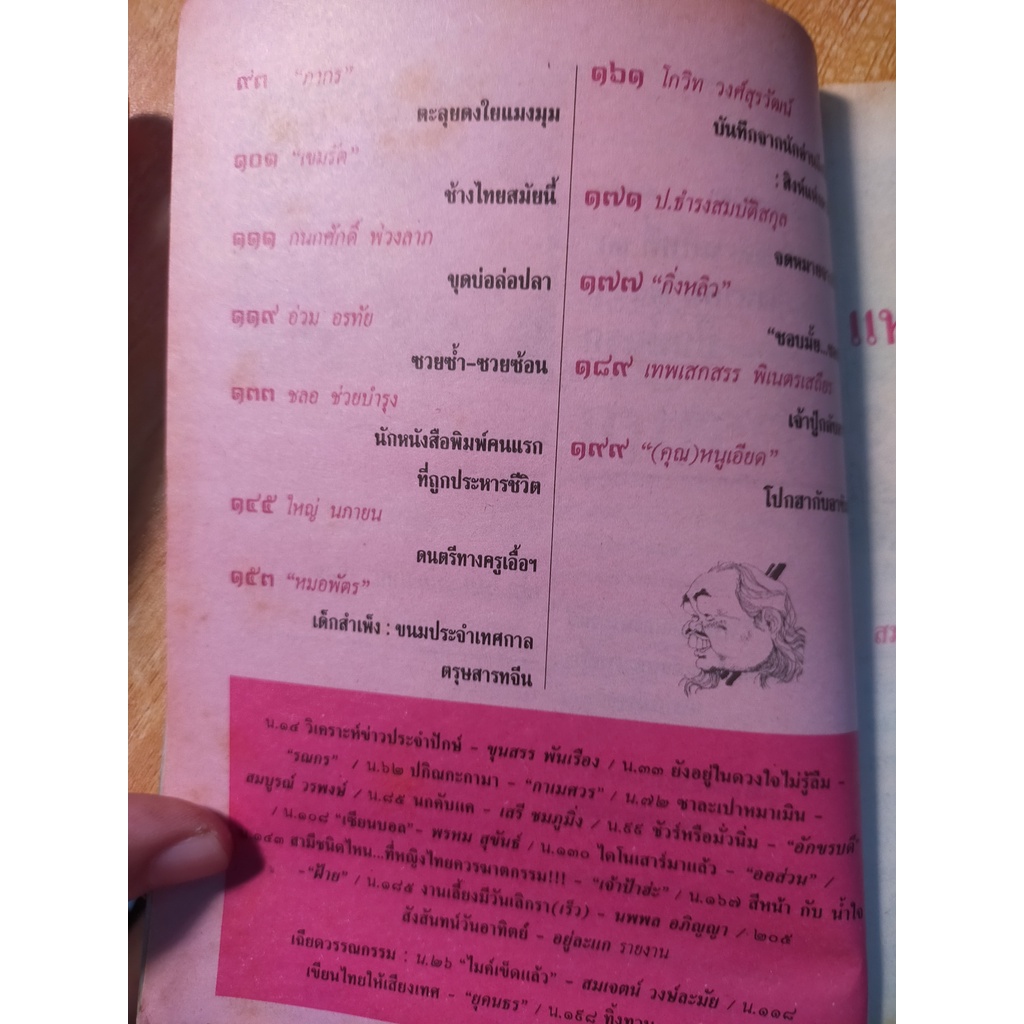 ๙๓ "ภากร"
ตะลุยดงใยแมงมุม
๑๐๑ "เขมรัต"
ช้างไทยสมัยนี้
๑๑๑ กนกศักดิ์ พ่วงลาภ
ขุดบ่อล่อปลา
๑๑๙ อ่วม อรทัย
ซวยซ้ำ-ซวยซ้อน
๑๓๓ ชลอ ช่วยบำรุง
นักหนังสือพิมพ์คนแรก
ที่ถูกประหารชีวิต
๑๔๕ ใหญ่ นภายน
ดนตรีทางครูเอื้อฯ
๑๕๓ "หมอพัตร"
เด็กสำเพ็ง : ขนมประจำเทศกาล
ตรุษสารทจีน
๑๖๑ โกวิท วงศ์สุรวัฒน์
บันทึกจากนักอ่าน
: สิงห์
๑๗๑ ป.ธำรงสมบัติสกุล
จดหมาย
๑๗๗ "กิ่งหลิว"
"ชอบมั้ย...
๑๘๙ เทพเสกสรร พิเนตรเสถียร
เจ้าปู่
๑๙๙ "(คุณ)หนูเอียด"
โปกฮากับอา
แห
สม
น.๑๔ วิเคราะห์ข่าวประจำปักษ์ - ขุนสรร พันเรือง / น.๓๓ ยังอยู่ในดวงใจไม่รู้ลืม -
"รณกร" / น.๖๒ ปกิณกะกามา - "กาเมศวร" / น.๗๒ ซาละเปาหมาเมิน -
สมบูรณ์ วรพงษ์ / น.๘๕ นกคับแค - เสรี ชมภูมิ่ง / น.๙๙ ชัวร์หรือมั่วนิ่ม - "อักขรบดี"
/ น.๑๐๘ "เซียนบอล"- พรหม สุขันธ์ / น.๑๓๐ ไดโนเสาร์มาแล้ว - "ออส่วน" /
๑๔๓ สามีชนิดไหน...ที่หญิงไทยควรฆาตกรรม!!! - "เจ้าป้าฮะ" / น.๑๖๗ สีหน้า กับ น้ำใจ
-"ฝ้าย" / น.๑๘๕ งานเลี้ยงมีวันเลิกรา(เร็ว) - นพพล อภิญญา / ๒๐๕
สังสันทน์วันอาทิตย์ - อยู่ละแก รายงาน
เฉียดวรรณกรรม : น.๒๖ "ไมค์เข็ดแล้ว" - สมเจตน์ วงษ์ละมัย / น.๑๑๘
เขียนไทยให้เสียงเทศ - "ยุคนธร" / น.๑๙๘